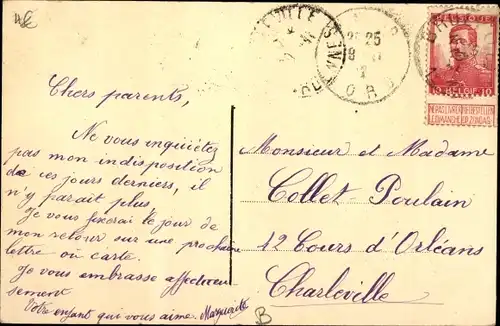 Chers parents,
Ne vous inquiétez
pas mon indisposition
de ces jours derniers, il
n'y parait plus.
Je vous fixerai le jour de
mon retour sur une prochaine
lettre ou carte.
Je vous embrasse affectueu
sement
Votre enfant qui vous aime. Marguerite
Monsieur et Madame
Collet-Poulain
12 Cours d'Orléans
Charleville
BELGIQUE
10 BELGIË 10
NE PAS LIVRER LE DIMANCHE
B